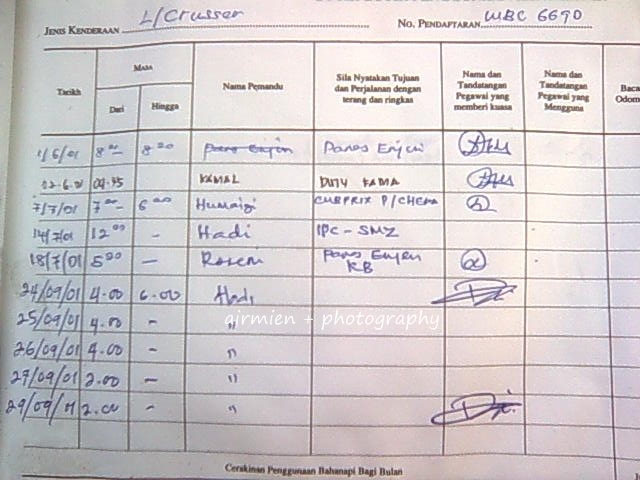 JENIS KENDERAAN L/Crusser NO. PENDAFTARAN WBC 6690
Tarikh Masa Nama Pemandu Sila Nyatakan Tujuan dan Perjalanan dengan terang dan ringkas Nama dan Tandatangan Pegawai yang memberi kuasa Nama dan Tandatangan Pegawai yang Mengguna Baca Odom
Dari Hingga
1/6/01 8.00 8.20 Panas Enjin Panas Enjin
12.6.01 04.45 KAMAL DUTY KAMA
7/7/01 7.00 6.00 Humaizi CUBPRIX P/CHEMA
14/7/01 12.00 - Hadi IPC - SMZ
18/7/01 5.00 - Rosem Panas Enjin KB
24/09/01 4.00 6.00 Hadi
airmien + photography
25/09/01 4.00 - "
26/09/01 4.00 - "
27/09/01 2.00 - "
29/09/01 2.00 - "
Cerakinan Penggunaan Bahanapi Bagi Bulan